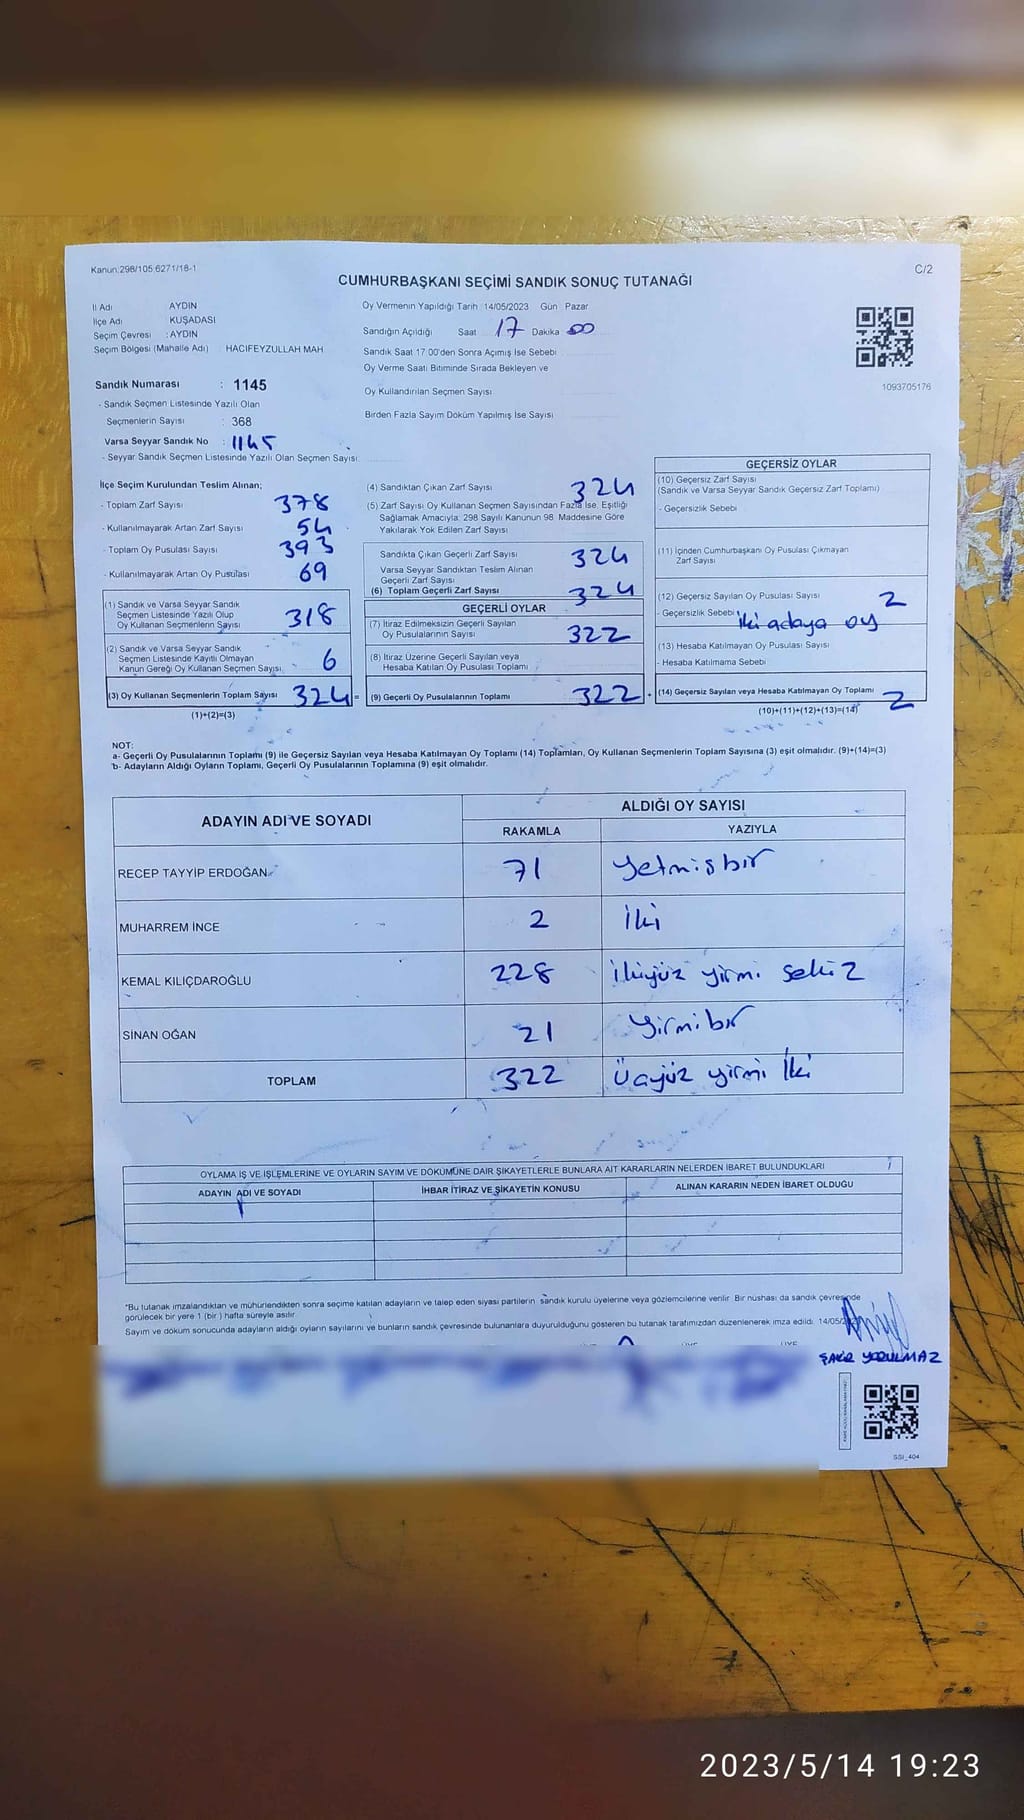 Kanun:298/105 6271/18-1
C/2
CUMHURBAŞKANI SEÇİMİ SANDIK SONUÇ TUTANAĞI
İl Adı AYDIN
İlçe Adı KUŞADASI
Seçim Çevresi : AYDIN
Seçim Bölgesi (Mahalle Adı) HACIFEYZULLAH MAH
Sandık Numarası : 1145
- Sandık Seçmen Listesinde Yazılı Olan
Seçmenlerin Sayısı : 368
Varsa Seyyar Sandık No : 1145
- Seyyar Sandık Seçmen Listesinde Yazılı Olan Seçmen Sayısı:
Oy Vermenin Yapıldığı Tarih 14/05/2023 Gün Pazar
Sandığın Açıldığı Saat 17 Dakika 00
Sandık Saat 17:00'den Sonra Açımış İse Sebebi
Oy Verme Saati Bitiminde Sırada Bekleyen ve
Oy Kullandırılan Seçmen Sayısı
Birden Fazla Sayım Döküm Yapılmış İse Sayısı
1093705176
İlçe Seçim Kurulundan Teslim Alınan;
- Toplam Zarf Sayısı 378
- Kullanılmayarak Artan Zarf Sayısı 54
- Toplam Oy Pusulası Sayısı 393
- Kullanılmayarak Artan Oy Pusulası 69
(1) Sandık ve Varsa Seyyar Sandık
Seçmen Listesinde Yazılı Olup
Oy Kullanan Seçmenlerin Sayısı 318
(2) Sandık ve Varsa Seyyar Sandık
Seçmen Listesinde Kayıtlı Olmayan
Kanun Gereği Oy Kullanan Seçmen Sayısı 6
(3) Oy Kullanan Seçmenlerin Toplam Sayısı 324 =
(1)+(2)=(3)
(4) Sandıktan Çıkan Zarf Sayısı 324
(5) Zarf Sayısı Oy Kullanan Seçmen Sayısından Fazla İse, Eşitliği
Sağlamak Amacıyla; 298 Sayılı Kanunun 98. Maddesine Göre
Yakılarak Yok Edilen Zarf Sayısı
Sandıkta Çıkan Geçerli Zarf Sayısı 324
Varsa Seyyar Sandıktan Teslim Alınan
Geçerli Zarf Sayısı
(6) Toplam Geçerli Zarf Sayısı 324
GEÇERLİ OYLAR
(7) İtiraz Edilmeksizin Geçerli Sayılan
Oy Pusulalarının Sayısı 322
(8) İtiraz Üzerine Geçerli Sayılan veya
Hesaba Katılan Oy Pusulası Toplamı
(9) Geçerli Oy Pusulalarının Toplamı 322
GEÇERSİZ OYLAR
(10) Geçersiz Zarf Sayısı
(Sandık ve Varsa Seyyar Sandık Geçersiz Zarf Toplamı)
- Geçersizlik Sebebi
(11) İçinden Cumhurbaşkanı Oy Pusulası Çıkmayan
Zarf Sayısı
(12) Geçersiz Sayılan Oy Pusulası Sayısı 2
- Geçersizlik Sebebi iki adaya oy
(13) Hesaba Katılmayan Oy Pusulası Sayısı
- Hesaba Katılmama Sebebi
(14) Geçersiz Sayılan veya Hesaba Katılmayan Oy Toplamı 2
(10)+(11)+(12)+(13)=(14)
NOT:
a- Geçerli Oy Pusulalarının Toplamı (9) ile Geçersiz Sayılan veya Hesaba Katılmayan Oy Toplamı (14) Toplamları, Oy Kullanan Seçmenlerin Toplam Sayısına (3) eşit olmalıdır. (9)+(14)=(3)
b- Adayların Aldığı Oyların Toplamı, Geçerli Oy Pusulalarının Toplamına (9) eşit olmalıdır.
ADAYIN ADI VE SOYADI
ALDIĞI OY SAYISI
RAKAMLA YAZIYLA
RECEP TAYYİP ERDOĞAN 71 yetmişbir
MUHARREM İNCE 2 iki
KEMAL KILIÇDAROĞLU 228 ikiyüz yirmi sekiz
SİNAN OĞAN 21 Yirmibir
TOPLAM 322 Üçyüz yirmi iki
OYLAMA İŞ VE İŞLEMLERİNE VE OYLARIN SAYIM VE DÖKÜMÜNE DAİR ŞİKAYETLERLE BUNLARA AİT KARARLARIN NELERDEN İBARET BULUNDUKLARI
ADAYIN ADI VE SOYADI İHBAR İTİRAZ VE ŞİKAYETİN KONUSU ALINAN KARARIN NEDEN İBARET OLDUĞU
*Bu tutanak imzalandıktan ve mühürlendikten sonra seçime katılan adayların ve talep eden siyasi partilerin sandık kurulu üyelerine veya gözlemcilerine verilir. Bir nüshası da sandık çevresinde
görülecek bir yere 1 (bir) hafta süreyle asılır.
Sayım ve döküm sonucunda adayların aldığı oyların sayılarını ve bunların sandık çevresinde bulunanlara duyurulduğunu gösteren bu tutanak tarafımızdan düzenlenerek imza edildi. 14/05/
ÜYE
ŞAKİR YORULMAZ
SSI_404
2023/5/14 19:23